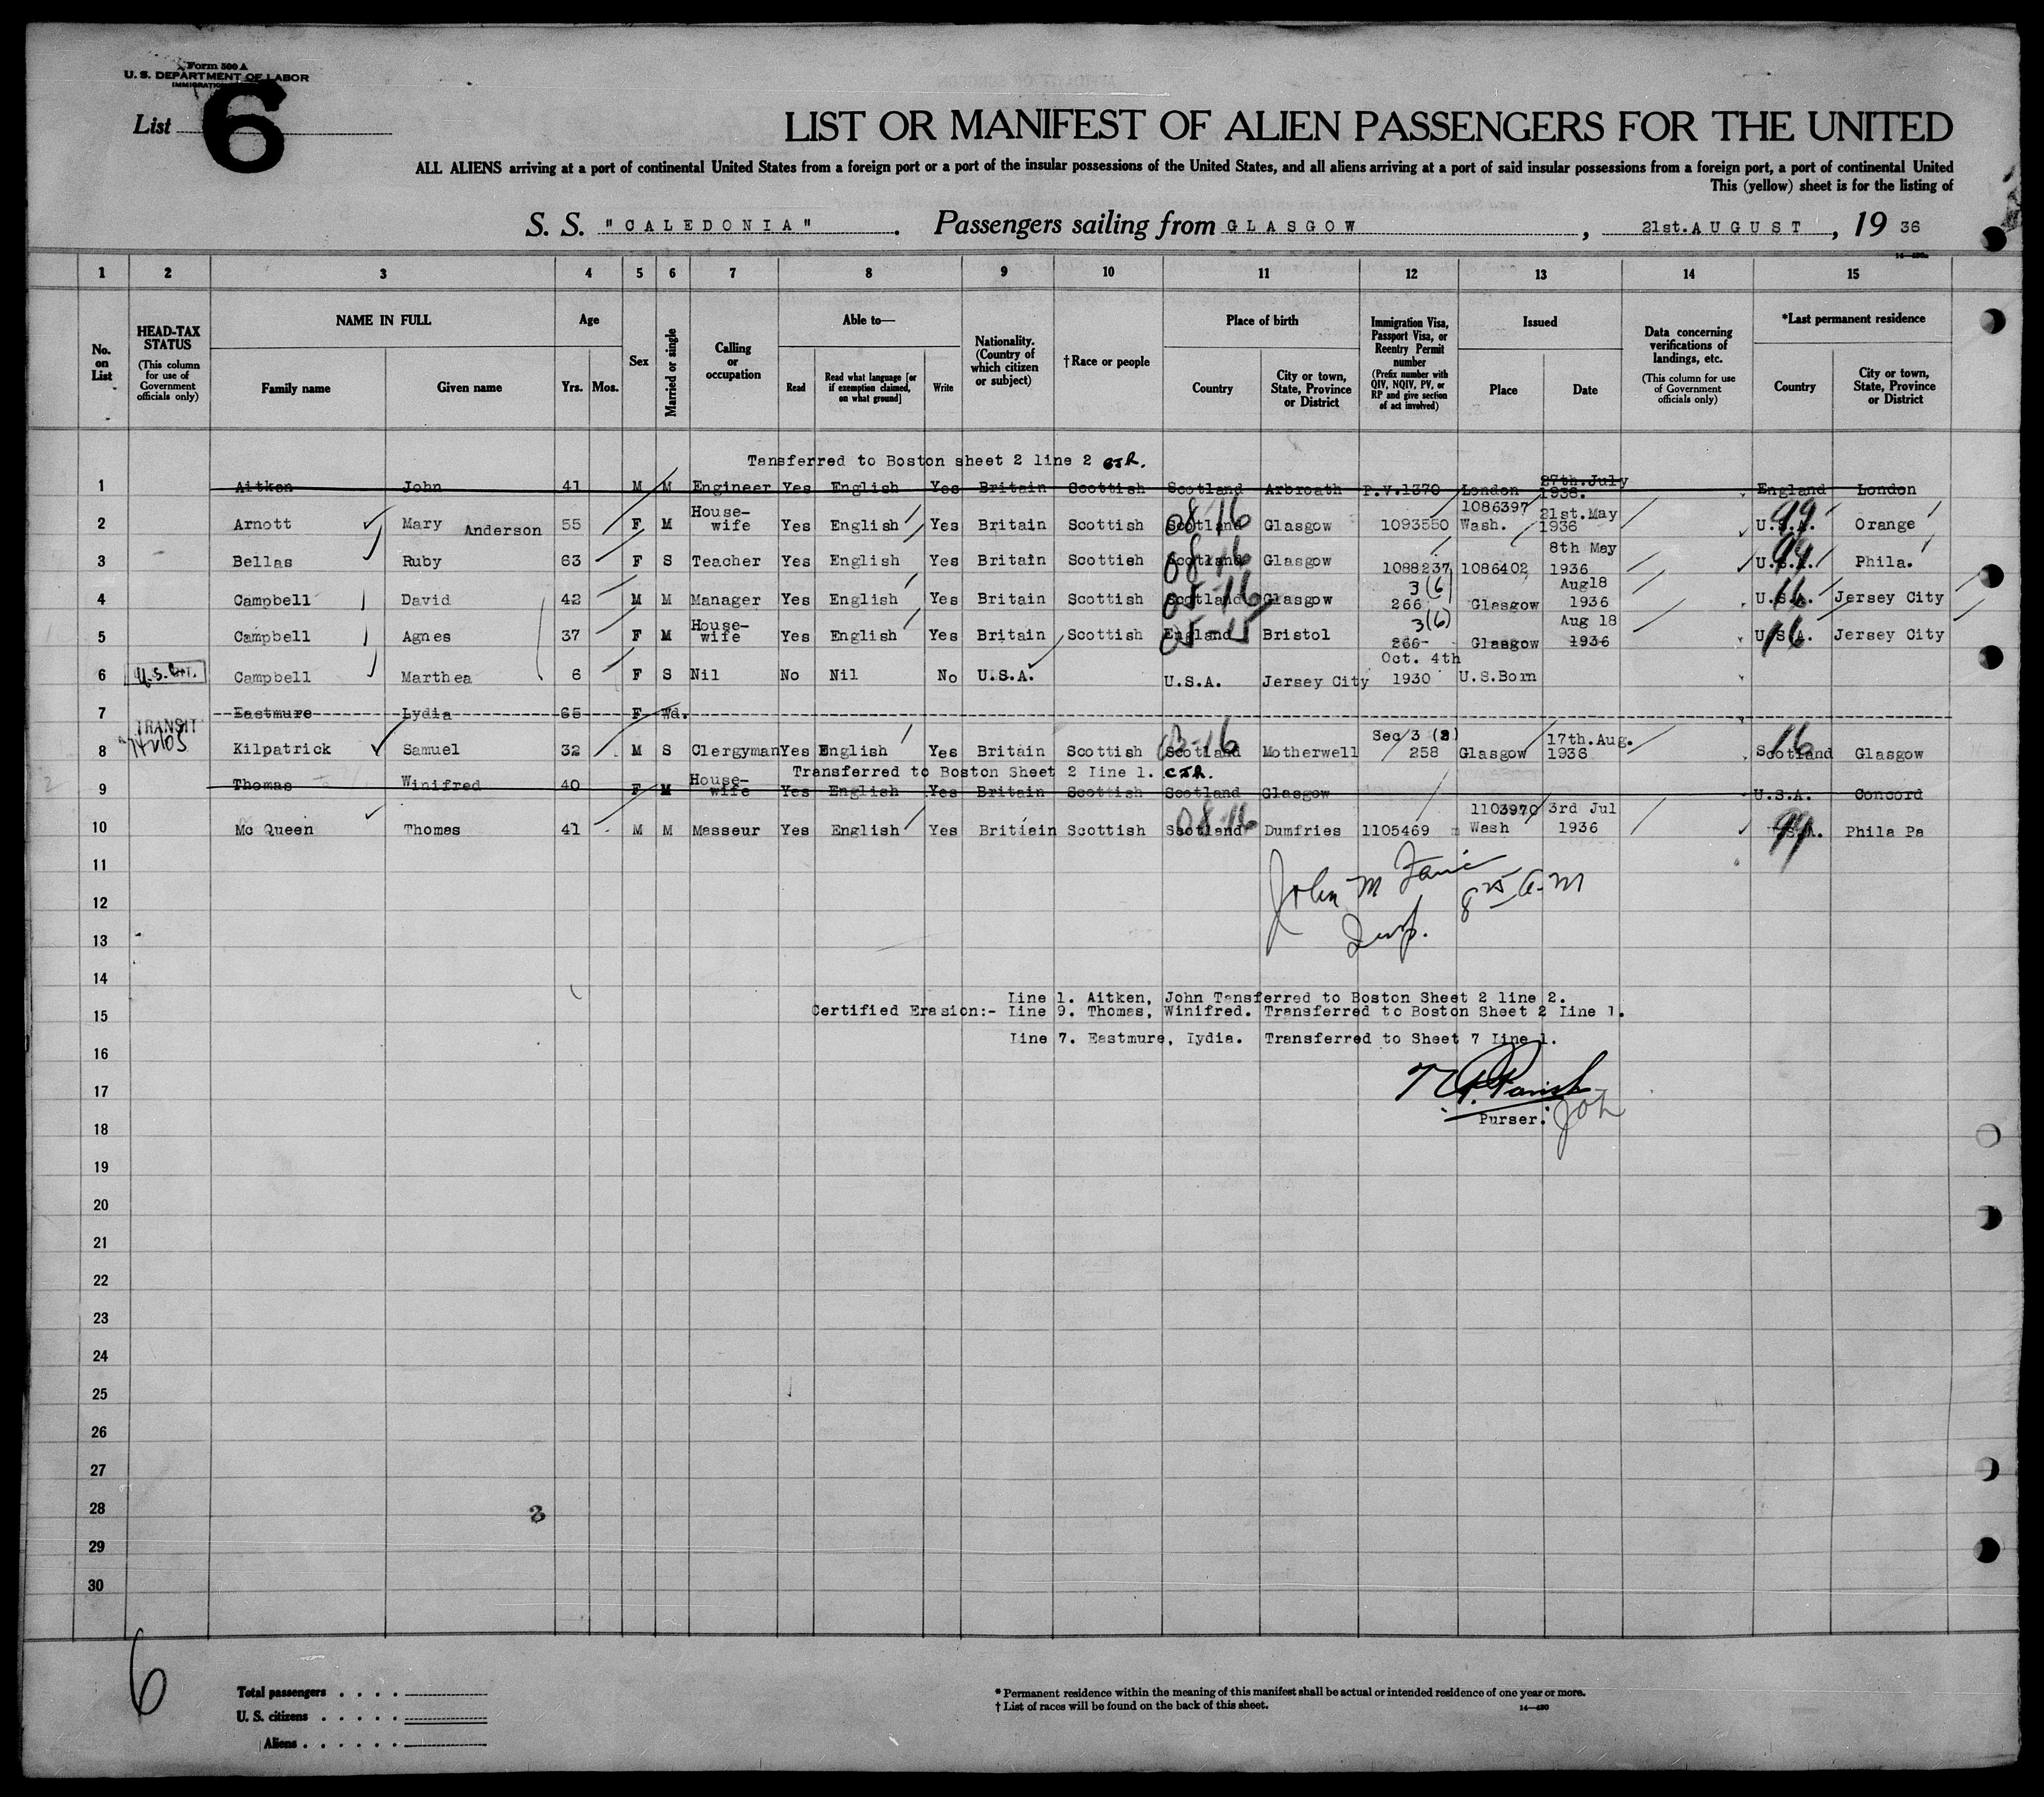 Form 500 A
U. S. DEPARTMENT OF LABOR
List 6
LIST OR MANIFEST OF ALIEN PASSENGERS FOR THE UNITED
ALL ALIENS arriving at a port of continental United States from a foreign port or a port of the insular possessions of the United States, and all aliens arriving at a port of said insular possessions from a foreign port, a port of continental United
This (yellow) sheet is for the listing of
S. S. "CALEDONIA". Passengers sailing from GLASGOW, 21st. AUGUST, 19 36
1 2 3 4 5 6 7 8 9 10 11 12 13 14 15
No. on List
HEAD-TAX STATUS
(This column for use of Government officials only)
NAME IN FULL
Family name
Given name
Age
Yrs. Mos.
Sex
Married or single
Calling or occupation
Able to—
Read
Read what language [or if exemption claimed, on what ground]
Write
Nationality. (Country of which citizen or subject)
†Race or people
Place of birth
Country
City or town, State, Province or District
Immigration Visa, Passport Visa, or Reentry Permit number
(Prefix number with QIV, NQIV, PV, or RP and give section of act involved)
Issued
Place
Date
Data concerning verifications of landings, etc.
(This column for use of Government officials only)
*Last permanent residence
Country
City or town, State, Province or District
Tansferred to Boston sheet 2 line 2
1 Aitken John 41 M M Engineer Yes English Yes Britain Scottish Scotland Arbroath P.V.1370 London 27th.July 1936. England London
2 Arnott Mary Anderson 55 F M House-wife Yes English Yes Britain Scottish Scotland 08-16 Glasgow 1093550 1086397 Wash. 21st.May 1936 U.S.A. 99 Orange
3 Bellas Ruby 63 F S Teacher Yes English Yes Britain Scottish Scotland 08-16 Glasgow 1088237 1086402 8th May 1936 U.S.A. 99 Phila.
4 Campbell David 42 M M Manager Yes English Yes Britain Scottish Scotland Glasgow 3(6) 266 Glasgow Aug18 1936 U.S.A. 16 Jersey City
5 Campbell Agnes 37 F M House-wife Yes English Yes Britain Scottish England Bristol 3(6) 266 Glasgow Aug 18 1936 U.S.A. 16 Jersey City
6 Campbell Marthea 6 F S Nil No Nil No U.S.A. U.S.A. Jersey City Oct. 4th 1930 U.S.Born
7 Eastmure Lydia 65 F Wd.
TRANSIT
8 Kilpatrick Samuel 32 M S Clergyman Yes English Yes Britain Scottish Scotland Motherwell Sec 3 (2) 258 Glasgow 17th.Aug. 1936 Scotland 16 Glasgow
Transferred to Boston Sheet 2 line 1.
9 Thomas Winifred 40 F M House-wife Yes English Yes Britain Scottish Scotland Glasgow U.S.A. Concord
10 Mc Queen Thomas 41 M M Masseur Yes English Yes Britiain Scottish Scotland 08-16 Dumfries 1105469 1103970 Wash 3rd Jul 1936 U.S.A. 99 Phila Pa
11
John M
12
13
Insp.
14
Line 1. Aitken, John Tansferred to Boston Sheet 2 line 2.
15
Certified Erasion:- Line 9. Thomas, Winifred. Transferred to Boston Sheet 2 Line 1.
Line 7. Eastmure, Lydia. Transferred to Sheet 7 Line 1.
16
17
Purser.
18
19
20
21
22
23
24
25
26
27
28
29
30
6
Total passengers . . . .
U. S. citizens . . . . .
Aliens . . . . . .
* Permanent residence within the meaning of this manifest shall be actual or intended residence of one year or more.
† List of races will be found on the back of this sheet.
14—430